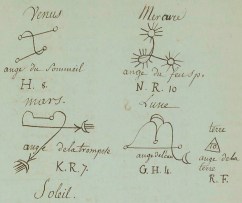 Venus Mercure
ange du Sommeil ange du feu sp.
H. 8. N. R. 10
mars. Lune
terre
ange de la trompete ange de l'eau ange de la terre
K. R. 7. G. H. 4. R. F.
Soleil.